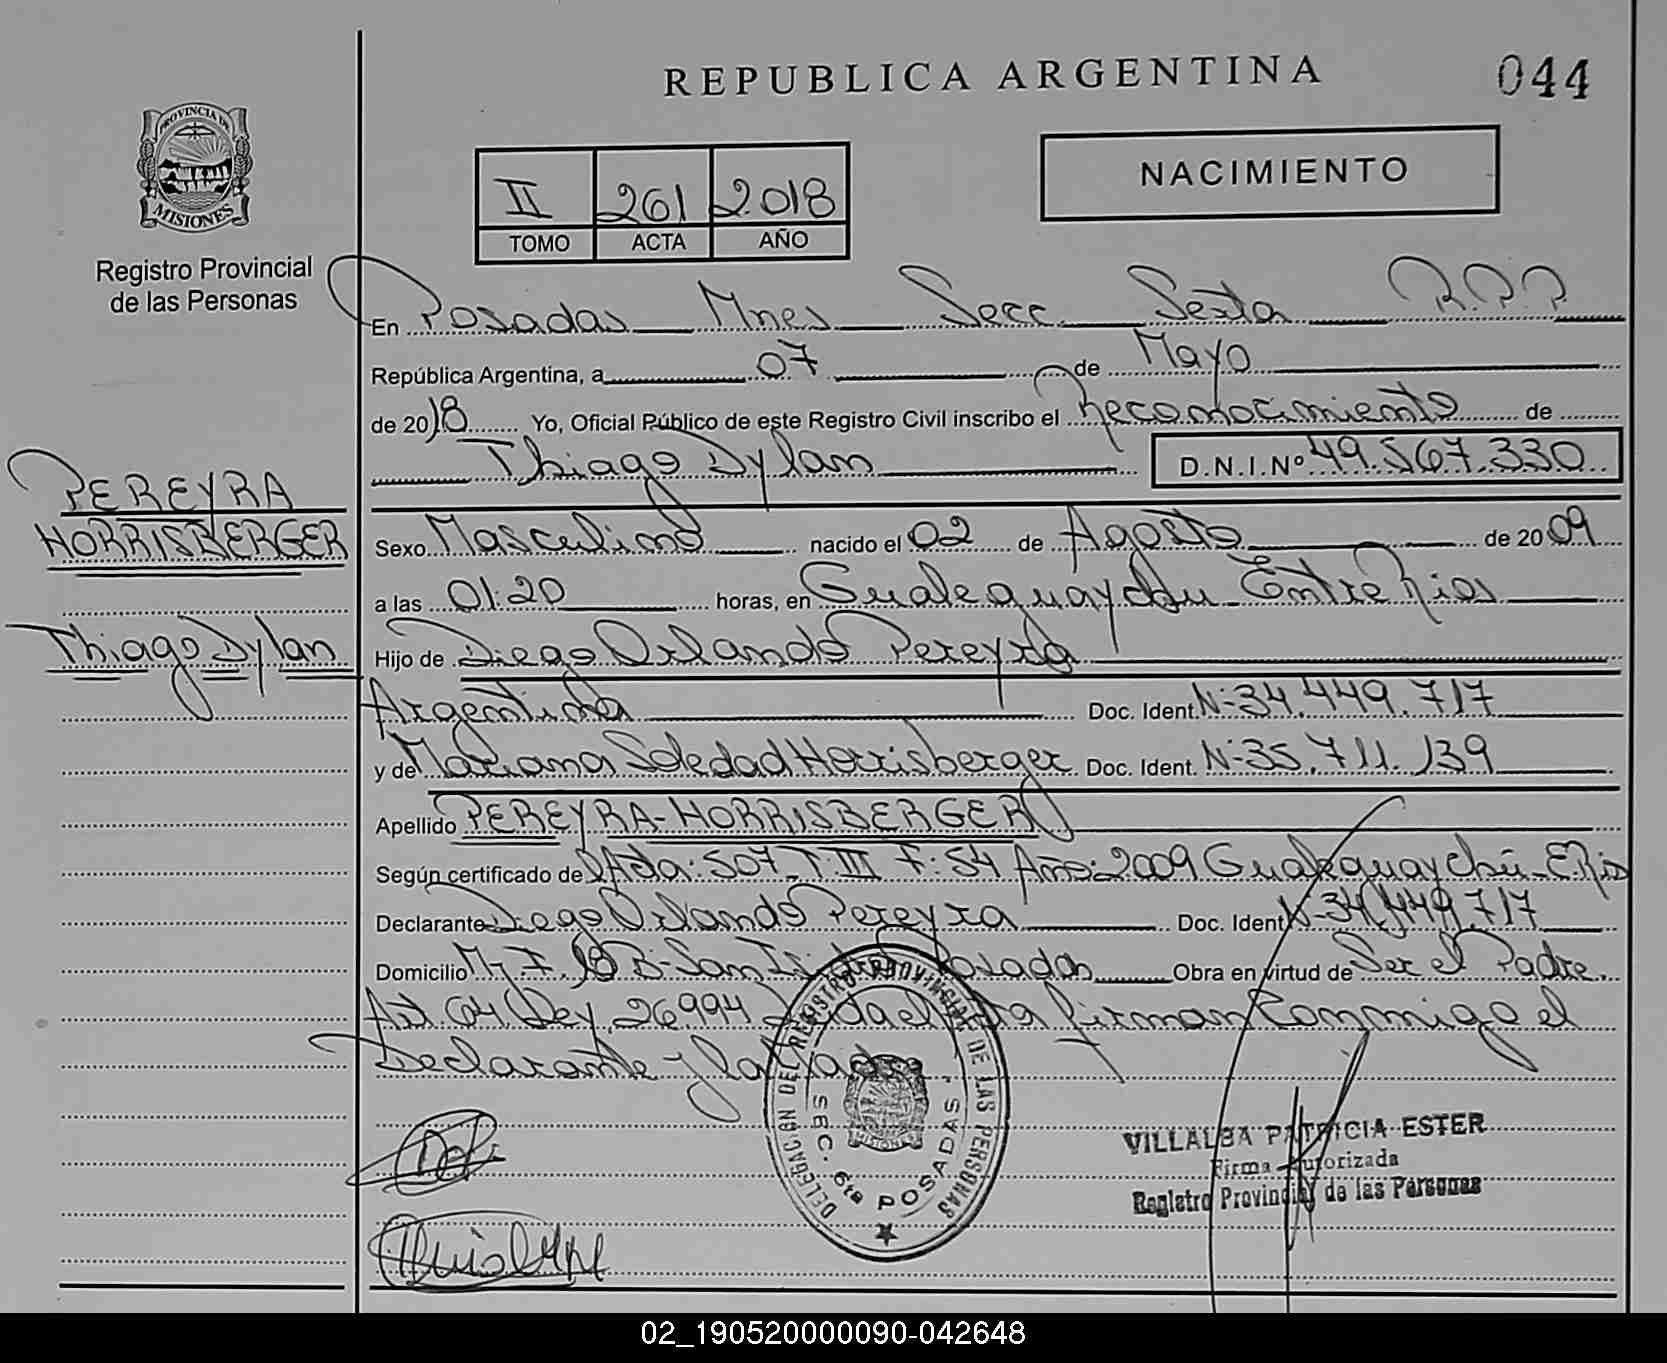 REPUBLICA ARGENTINA
044
PROVINCIA DE
MISIONES
Registro Provincial
de las Personas
II 261 2018
TOMO ACTA AÑO
NACIMIENTO
En Posadas Mnes Secc Sexta R.P.P
República Argentina, a 07 de Mayo
de 2018 Yo, Oficial Público de este Registro Civil inscribo el Reconocimiento de
Thiago Dylan D.N.I.Nº 49.567.330
PEREYRA
HORRISBERGER
Thiago Dylan
Sexo Masculino nacido el 02 de Agosto de 2009
a las 01:20 horas, en Gualeguaychu Entre Rios
Hijo de Diego Orlando Pereyra
Argentina Doc. Ident. Nº 34.449.717
y de Mariana Soledad Horrisberger Doc. Ident. Nº 35.711.139
Apellido PEREYRA-HORRISBERGER
Según certificado de Acta: 507 T: III F: 54 Año: 2009 Gualeguaychú-E.Rios
Declarante Diego Orlando Pereyra Doc. Ident Nº 34.449.717
Domicilio Posadas Obra en virtud de Ser el Padre.
Art. 64 Ley 26994 firman Conmigo el
Declarante y la
DELEGACION DEL REGISTRO PROVINCIAL DE LAS PERSONAS
SEC. 6ta POSADAS
MISIONES
VILLALBA PATRICIA ESTER
Firma Autorizada
Registro Provincial de las Personas
02_190520000090-042648